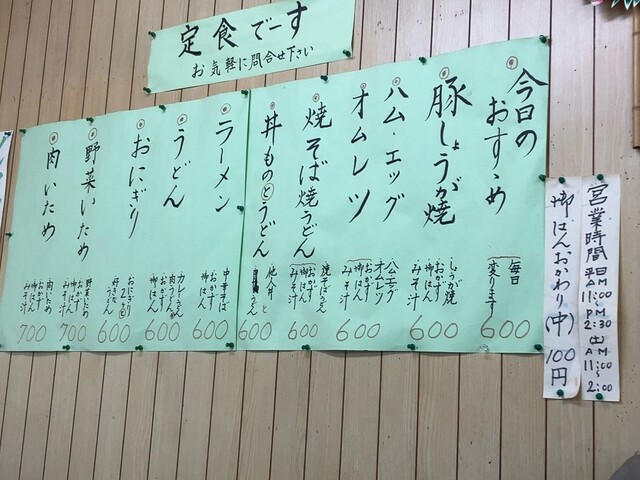 定食でーす
お気軽に問合せ下さい
今日の
おすゝめ
毎日
変ります
600
豚しょうが焼
しょうが焼
おかず
御はん
みそ汁
600
ハム・エッグ
オムレツ
ハムエッグ
オムレツ
おかず
御はん
みそ汁
600
焼そば焼うどん
焼そばうどん
おかず
御はん
みそ汁
600
丼ものとうどん
他人丼と
うどん
600
ラーメン
中華そば
おかず
御はん
600
うどん
カレーうどん
肉うどん
おかず
御はん
600
おにぎり
おにぎり
2ヶと
うどん
600
野菜いため
野菜いため
おかず
御はん
みそ汁
700
肉いため
肉いため
おかず
御はん
みそ汁
700
御はんおかわり(中)100円
営業時間平日AM11:00~PM2:30(土)AM11:00~2:00